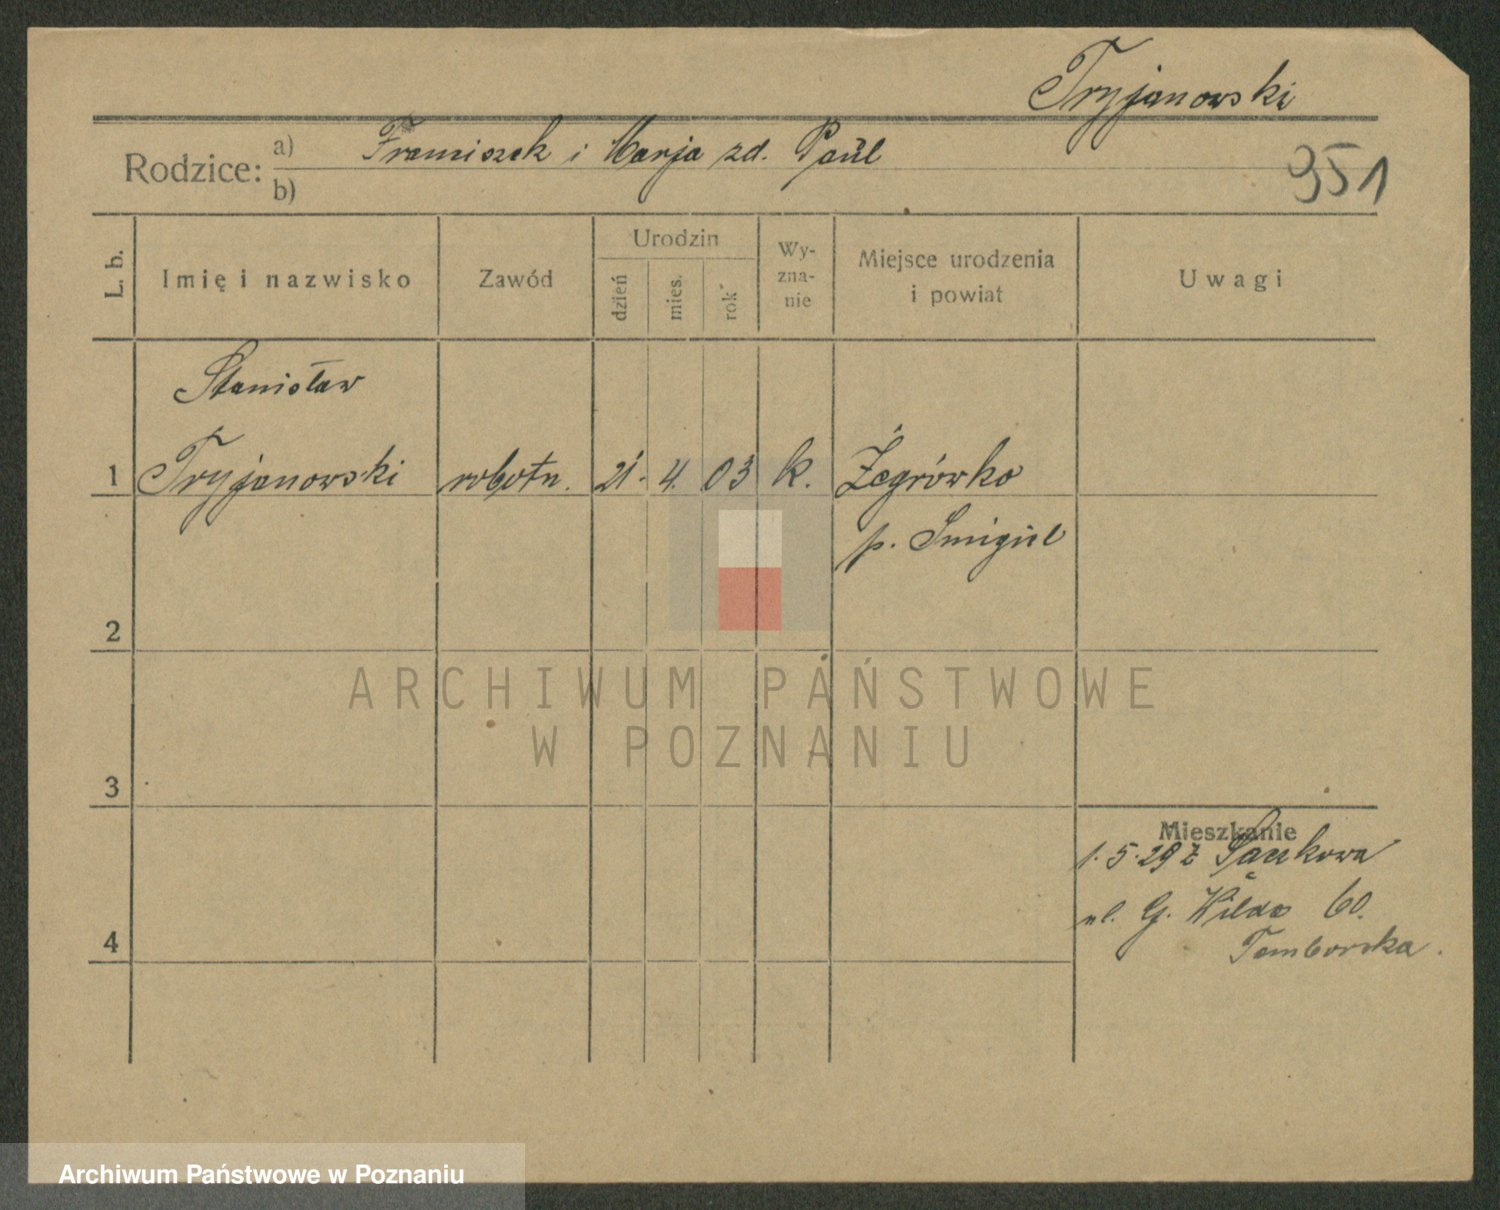 Tryjanowski
Rodzice: a) Franciszek i Marja zd. Paul
b)
951
L. b.
Imię i nazwisko
Zawód
Urodzin
dzień
mies.
rok
Wy-
zna-
nie
Miejsce urodzenia
i powiat
Uwagi
Stanisław
1 Tryjanowski robotn. 21. 4. 03 k. Żegrówko
p. Śmigiel
2
ARCHIWUM PAŃSTWOWE
W POZNANIU
3
Mieszkanie
1.5.29 z Sączkowa
4
ul. G. Wilda 60.
Tomborska.
Archiwum Państwowe w Poznaniu